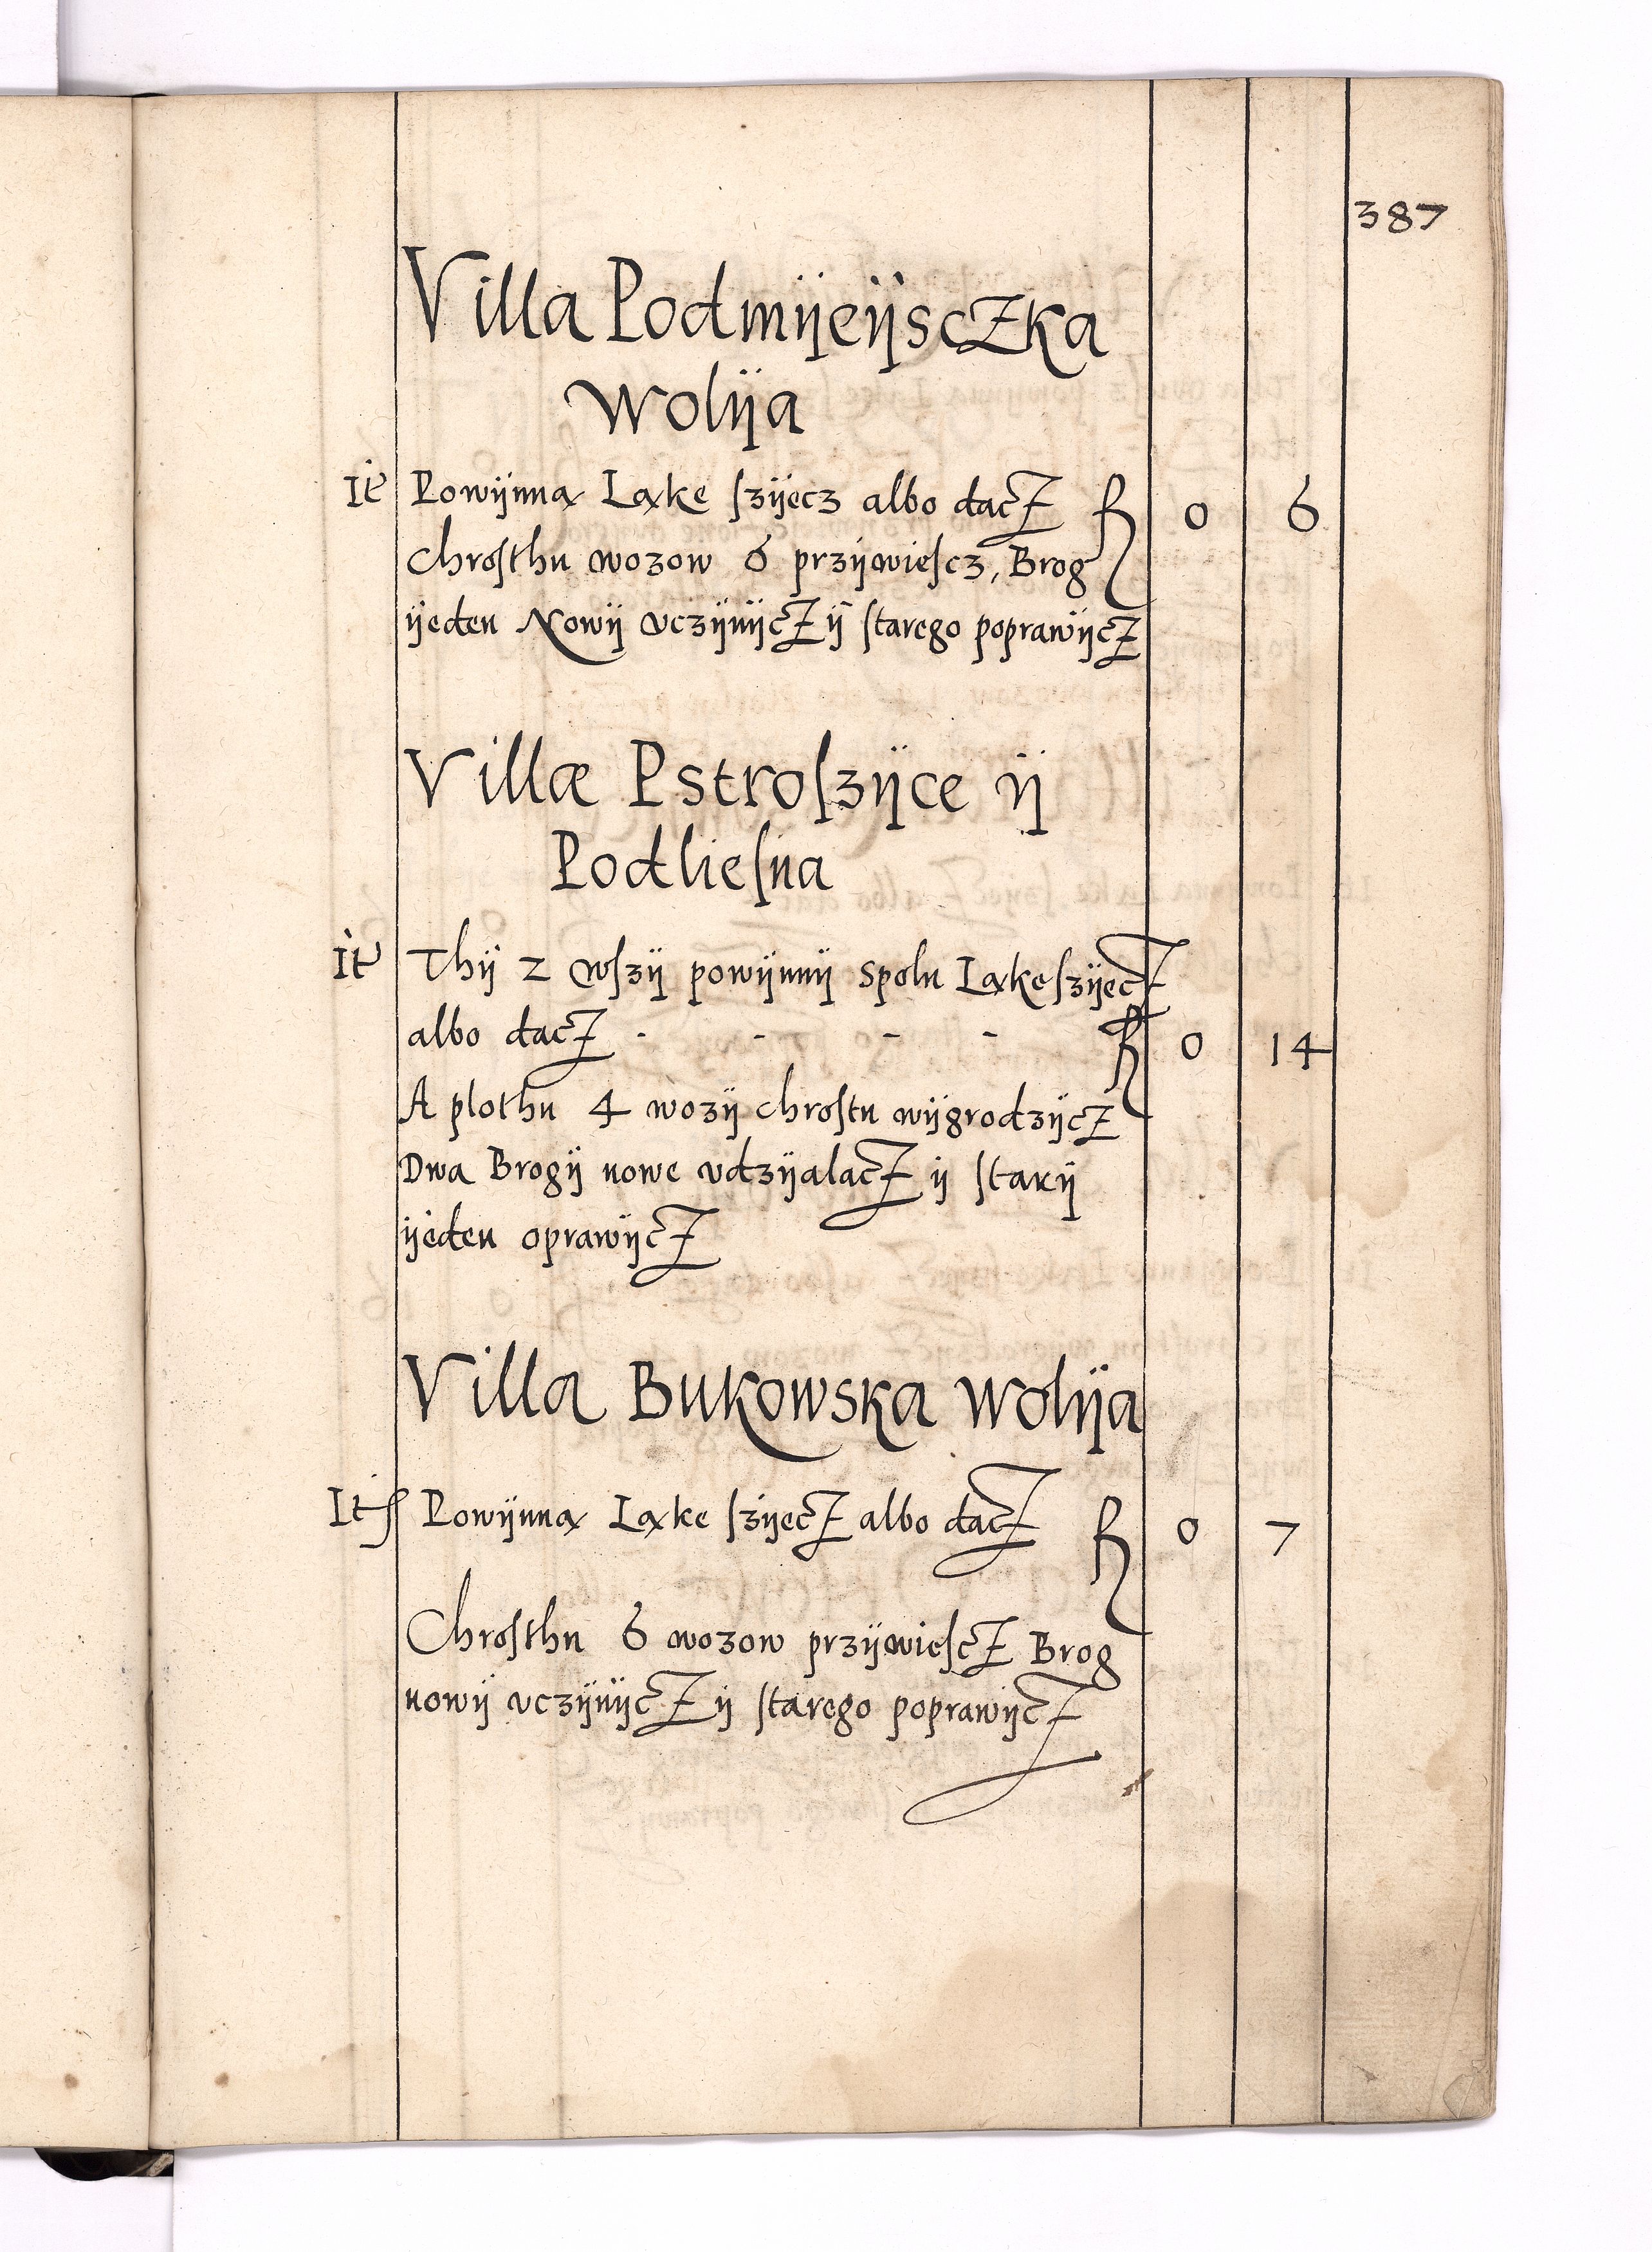 387
Villa Podmÿeÿsczka
Wolÿa
It Powÿnna Ląke ſzÿecz albo dacz ꝶ 0 6
Chroſthu wozow 6 przÿwieſcz, Brog
ÿeden Nowÿ vczÿnÿcz ÿ ſtarego poprawÿcz
Villæ Pstroſzÿce ÿ
Podlieſna
It Thÿ 2 wſzÿ powÿnnÿ spolu Ląke ſzÿecz
albo dacz - - - - ꝶ 0 14
A plothu 4 wozÿ chroſtu wÿgrodzÿcz
Dwa Brogÿ nowe vdzÿalacz ÿ ſtarÿ
ÿeden oprawÿcz
Villa Bukowska Wolÿa
It Powÿnna Ląke ſzÿecz albo dacz ꝶ 0 7
Chroſthu 6 wozow przÿwieſcz Brog
nowÿ vczÿnÿcz ÿ ſtarego poprawÿcz